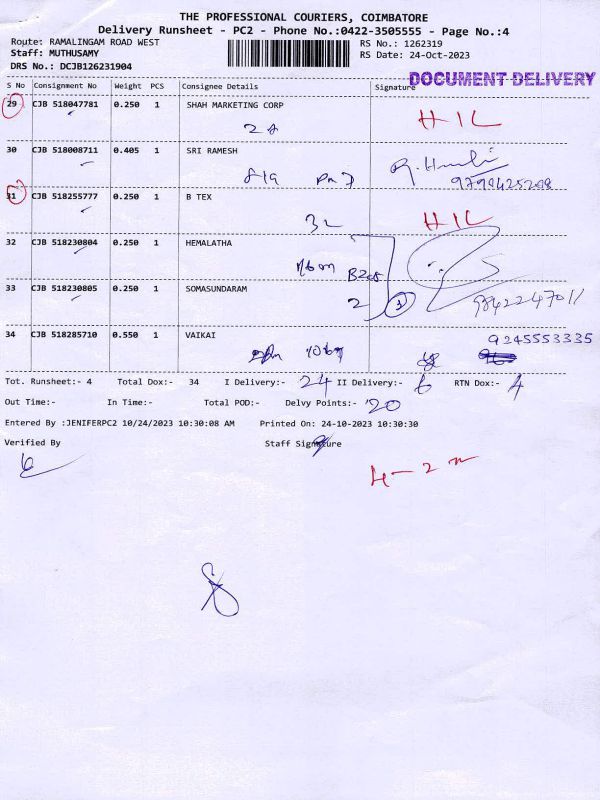 THE PROFESSIONAL COURIERS, COIMBATORE
Delivery Runsheet - PC2 - Phone No.:0422-3505555 - Page No.:4
Route: RAMALINGAM ROAD WEST RS No.: 1262319
Staff: MUTHUSAMY RS Date: 24-Oct-2023
DRS No.: DCJB126231904
DOCUMENT DELIVERY
S No Consignment No Weight PCS Consignee Details Signature
29 CJB 518047781 0.250 1 SHAH MARKETING CORP
30 CJB 518008711 0.405 1 SRI RAMESH
9790425208
31 CJB 518255777 0.250 1 B TEX
32 CJB 518230804 0.250 1 HEMALATHA
33 CJB 518230805 0.250 1 SOMASUNDARAM
2 1 9842247011
34 CJB 518285710 0.550 1 VAIKAI
9245553335
Tot. Runsheet:- 4 Total Dox:- 34 I Delivery:- 24 II Delivery:- 6 RTN Dox:- 4
Out Time:- In Time:- Total POD:- Delvy Points:- 20
Entered By :JENIFERPC2 10/24/2023 10:30:08 AM Printed On: 24-10-2023 10:30:30
Verified By Staff Signature